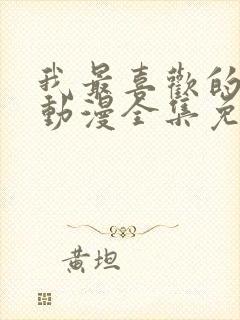 我最喜歡的
動漫全集免
黃坦